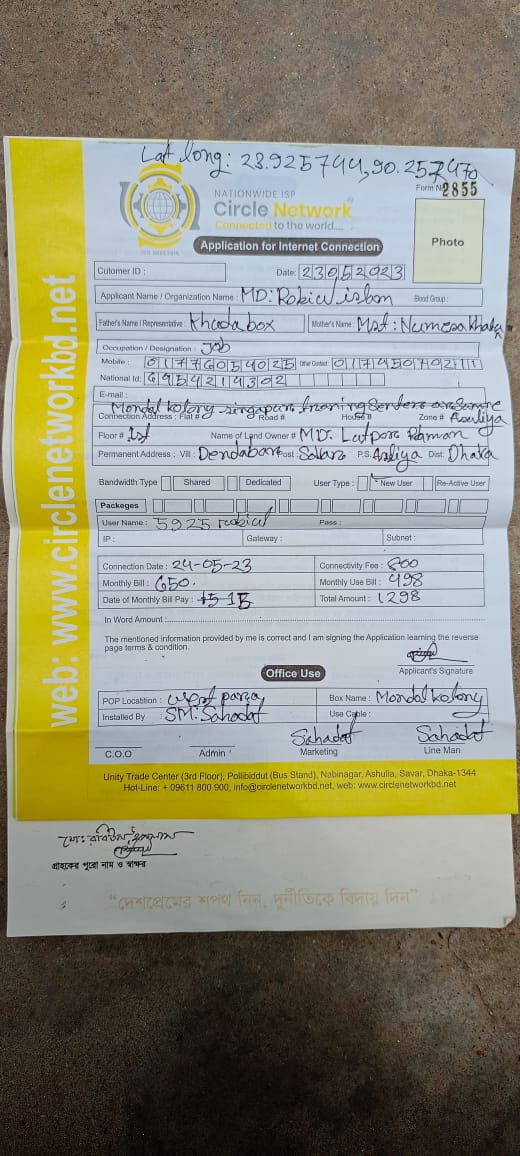 Lat long: 23.925744,90.257470
NATIONWIDE ISP
Form N 2855
Circle Network
Connected to the world....
Application for Internet Connection
Photo
Cutomer ID :
Date: 23052023
Applicant Name / Organization Name : MD: Robiul islam Blood Group :
Father's Name / Representative : Khoda box Mother's Name : Mst:
Occupation / Designation : Job
Mobile : 01776054025 Other Contact
National Id: 6954214302
E-mail :
Mondal kolony
Connection Address : Flat # Road # House # Zone #
Floor # 1st Name of Land Owner # MD. Rahman
Permanent Address : Vill : Post : P.S. Dist: Dhaka
Bandwidth Type Shared Dedicated User Type : New User Re-Active User
Packeges
User Name : 5925 robiul Pass :
IP : Gateway : Subnet :
Connection Date : 24-05-23 Connectivity Fee : 800
Monthly Bill : 650. Monthly Use Bill : 498
Date of Monthly Bill Pay : Total Amount : 1298
In Word Amount
The mentioned information provided by me is correct and I am signing the Application learning the reverse
page terms & condition.
Applicant's Signature
Office Use
POP Locatition : West para Box Name : Mondal kolony
Installed By : SM. Sahadat Use Cable :
Sahadat Sahadat
C.O.O Admin Marketing Line Man
Unity Trade Center (3rd Floor), Pollibiddut (Bus Stand), Nabinagar, Ashulia, Savar, Dhaka-1344
Hot-Line: + 09611 800 900, info@circlenetworkbd.net, web: www.circlenetworkbd.net
web: www.circlenetworkbd.net
গ্রাহকের পুরো নাম ও স্বাক্ষর
“দেশপ্রেমের শপথ নিন, দুর্নীতিকে বিদায় দিন”